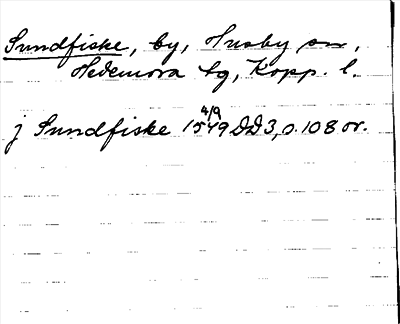 Sundfiske, by, Husby sn,
Hedemora bg, Kopp. l.
4/9
j Sundfiske 1549 DD3, s. 108 or.